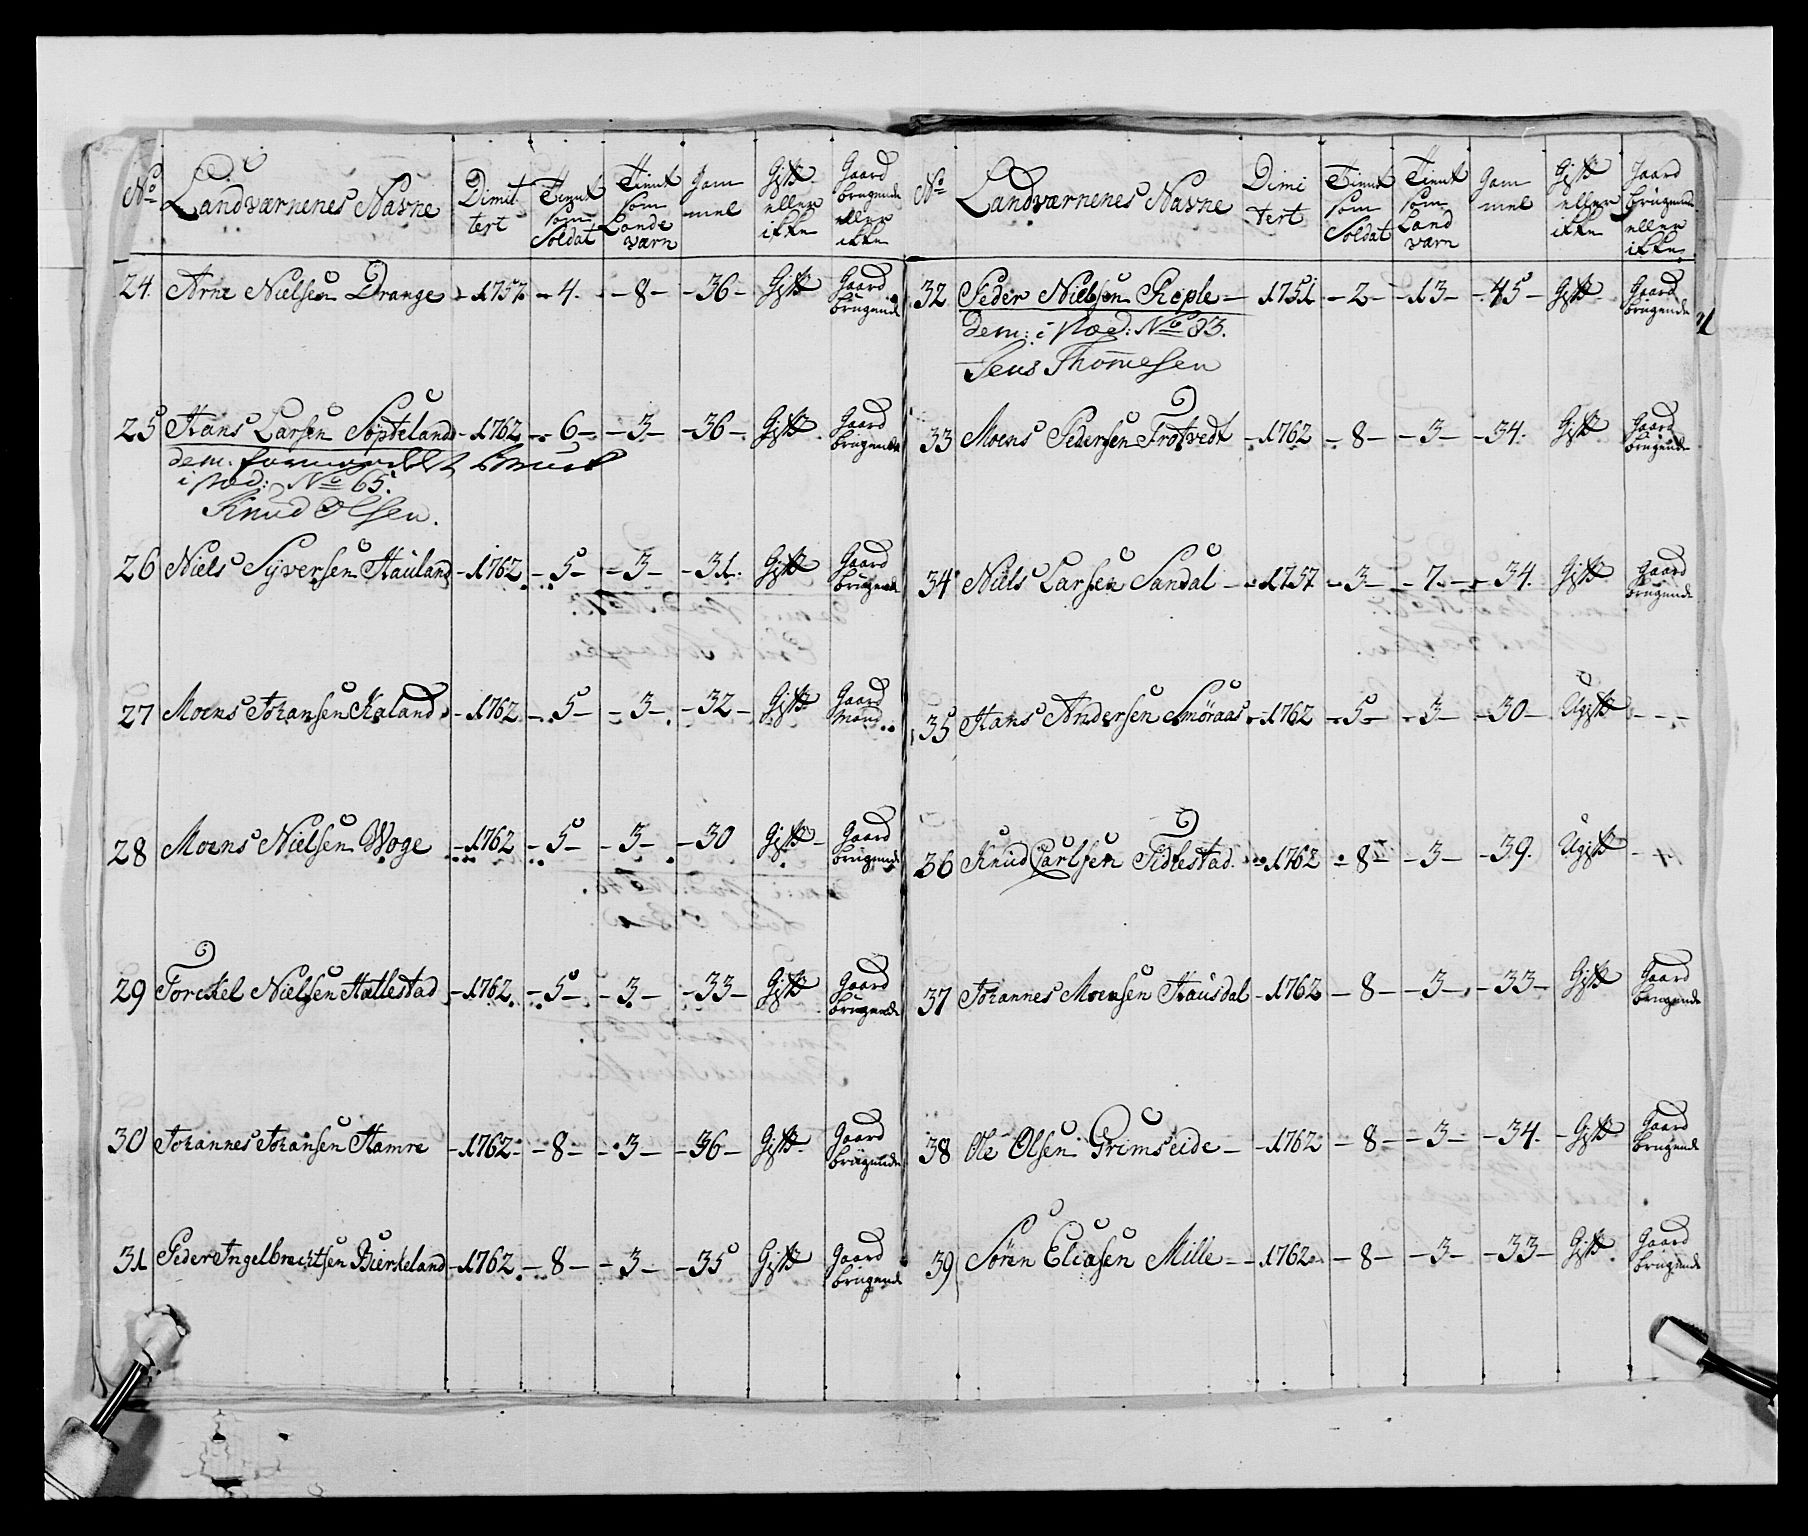 No Landværnenes Navne Dimit tert Tient som Soldat Tient som Lande værn Gam mel Gift eller ikke Gaard brugende eller ikke
24. Arne Nielsen Drange - 1757. - 4. - 8 - - 36 - Gift Gaard brugende
25 Hans Larsen Søpteland - 1762 - 6 - - 3 - - 36 - Gift Gaard brugende
dem:
i sted: No 65.
Knud Olsen.
26 Niels Syversen Hauland - 1762. - 5 - - 3 - - 31. Gift Gaard brugende
27 Moens Johansen Kaland - 1762 - 5 - - 3 - - 32 - Gift Gaard Mand
28 Moens Nielsen Woge - 1762 - 5 - - 3 - - 30 Gift Gaard brugende
29 Torckel Nielsen Hallestad - 1762. - 5 - - 3 - - 33 - Gift Gaard brugende
30 Johannes Johansen Hamre - 1762 - 8 - - 3 - - 36 - Gift Gaard brugende
31 Peder Ingelbrechtsen Bierkeland - 1762. - 8 - - 3 - - 35 Gift Gaard brugende
No Landværnenes Navne Dimi tert Tient som Soldat Tient som Land værn Gam mel Gift eller ikke Gaard brugende eller ikke
32 Peder Nielsen Røple - 1751 - 2 - - 13 - - 45 - Gift Gaard brugende
Dem: i sted: No 83.
Jens Thommesen
33 Moens Pedersen Trotvedt - 1762 - 8 - - 3 - - 34. Gift Gaard brugende
34 Niels Larsen Sandal - 1757 - 3 - - 7 - - 34. Gift Gaard brugende
35 Hans Andersen Smöraas - 1762 - 5 - - 3 - - 30 - Ugift - - -
36 Knud Carlsen Titlestad - 1762 - 8 - - 3 - - 39. Ugift -
37 Johannes Monsen Hausdal - 1762 - 8 - - 3 - - 33 - Gift Gaard brugende
38 Ole Olsen Grimseide - 1762 - 8 - - 3 - - 34. - Gift Gaard brugende
39 Søren Eliasen Mille - 1762 - 8 - - 3 - - 33 - Gift Gaard brugende